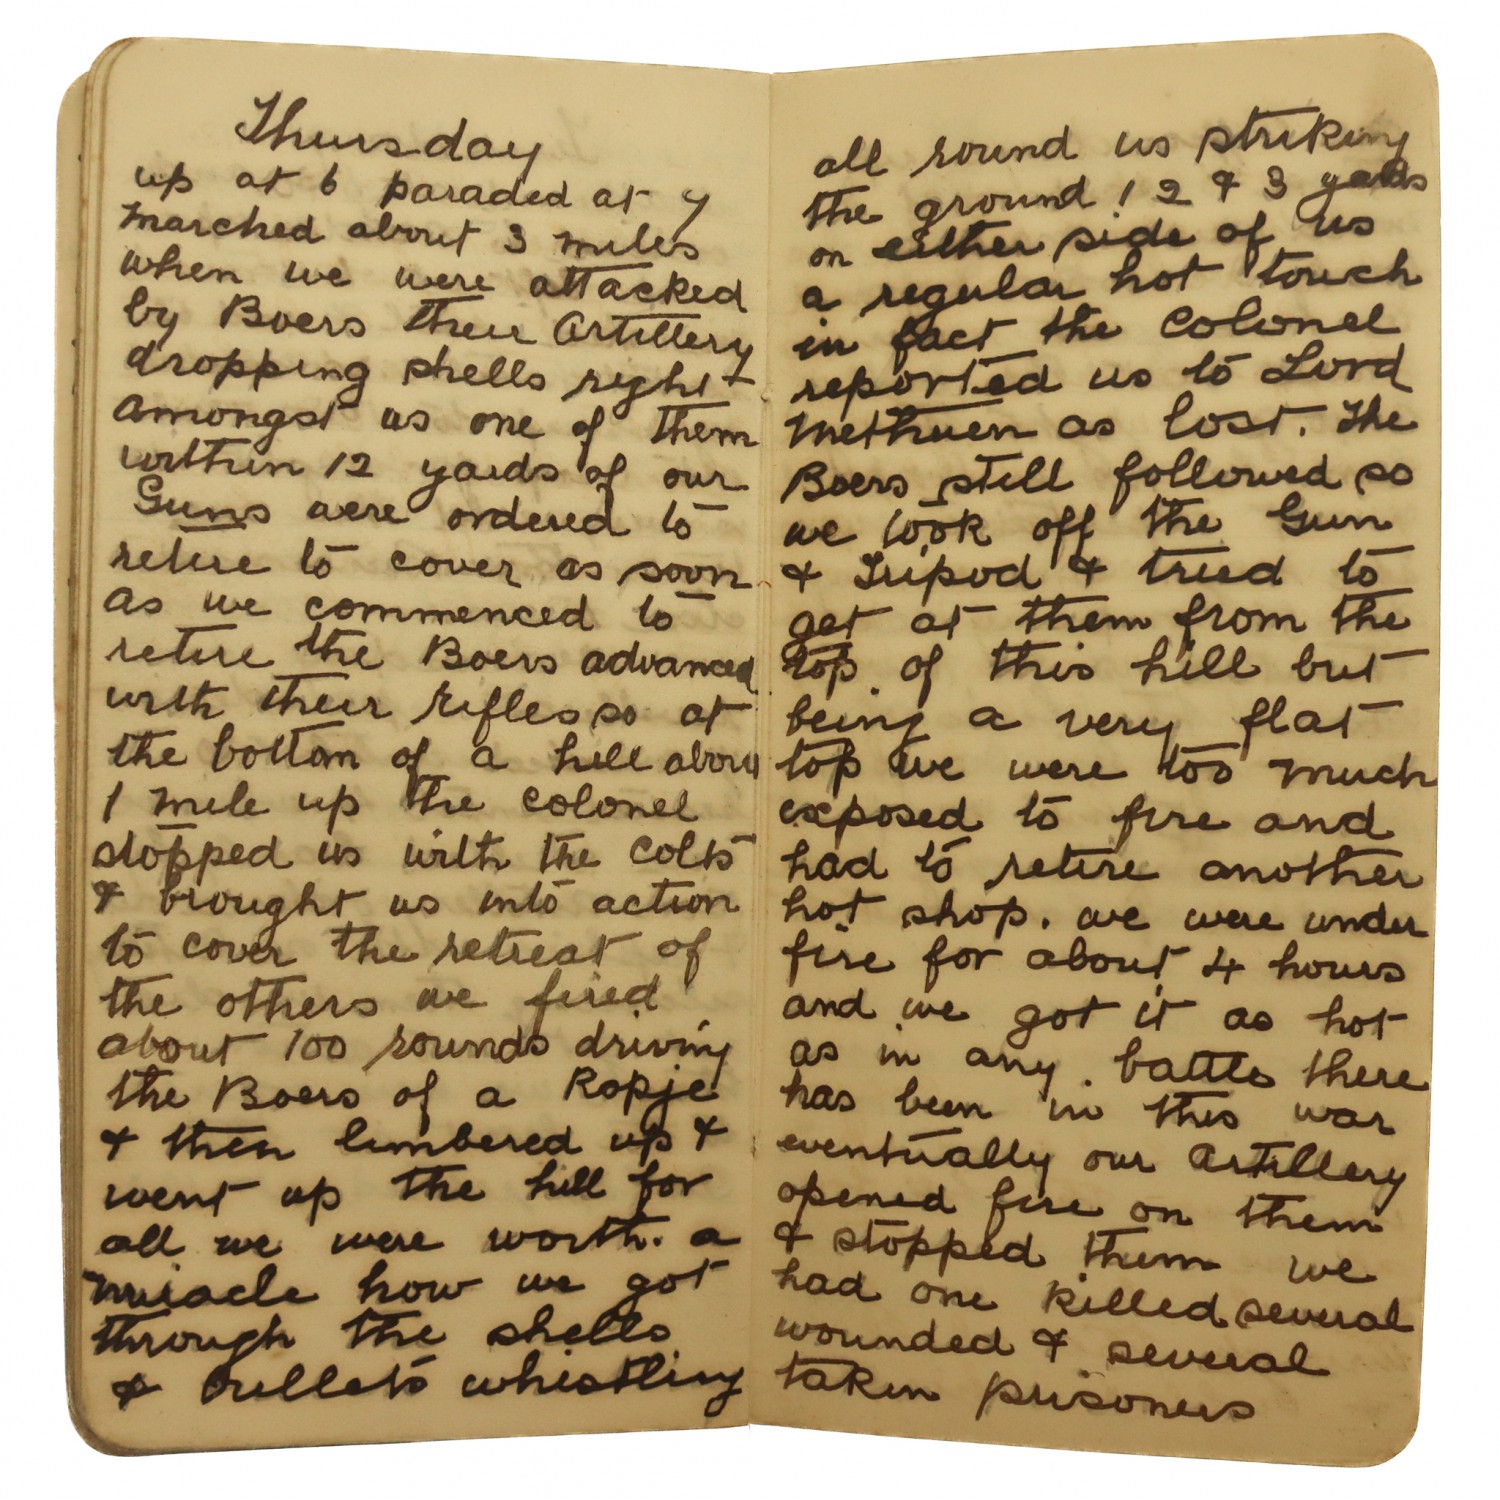 Thursday
up at 6 paraded at 7
marched about 3 miles
when we were attacked
by Boers their Artillery
dropping shells right
amongst us one of them
within 12 yards of our
Guns were ordered to
retire to cover as soon
as we commenced to
retire the Boers advanced
with their rifles so at
the bottom of a hill about
1 mile up the colonel
stopped us with the colts
& brought us into action
to cover the retreat of
the others we fired
about 100 rounds driving
the Boers of a Kopje
& then limbered up &
went up the hill for
all we were worth. a
miracle how we got
through the shells
& bullets whistling
all round us striking
the ground 1 2 & 3 yards
on either side of us
a regular hot touch
in fact the colonel
reported us to Lord
Methuen as lost. The
Boers still followed so
we took off the Gun
& Tripod & tried to
get at them from the
top of this hill but
being a very flat
top we were too much
exposed to fire and
had to retire another
hot shop. we were under
fire for about 4 hours
and we got it as hot
as in any battle there
has been in this war
eventually our artillery
opened fire on them
& stopped them we
had one killed several
wounded & several
taken prisoners